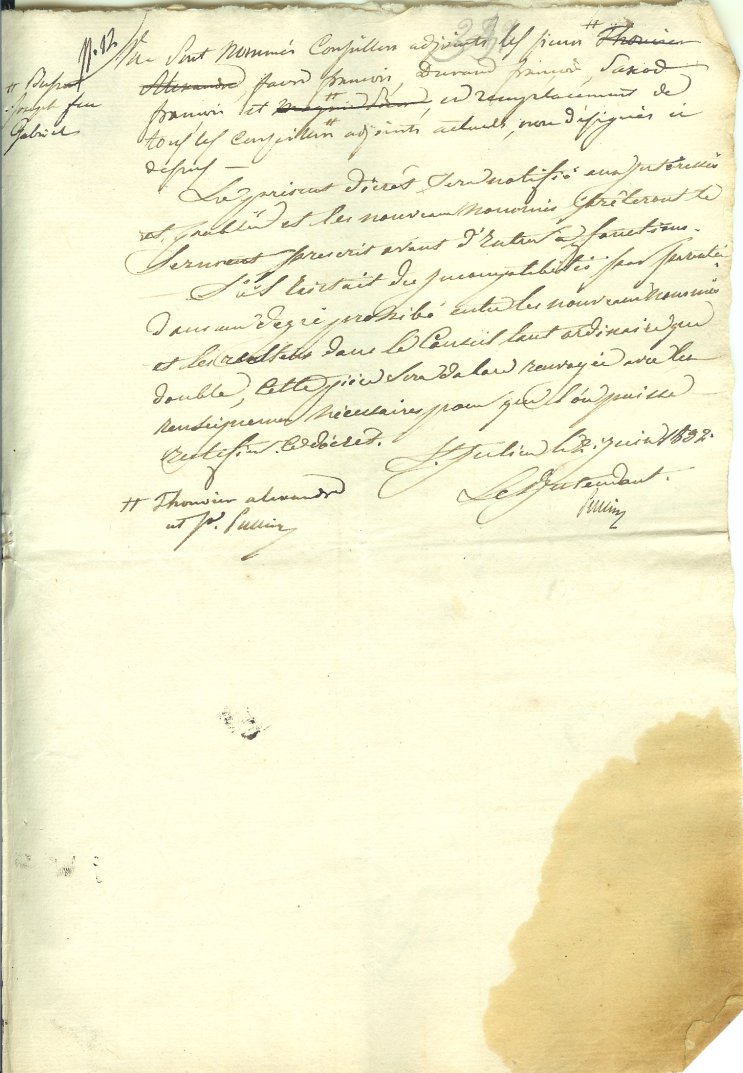 N. 12
# Dufour
joseph feu
Gabriel
Sont nommés Conseillers adjoints, les sieurs # Thonier
Alexandre, favre françois, Durand françois,
françois et # en remplacement de
tous les Conseillers adjoints actuels, non désignés ci
dessus —
Le présent décrêt sera notifié aux Intéressés
et publié et les nouveaux nommés prêteront le
Serment prescrit avant d'Entrer en fonctions.
S'il Existait des incompatibilités par parenté
dans un degré prohibé entre les nouveaux nommés
et les restans dans le Conseil tant ordinaire que
double, cette pièce sera alors renvoyée avec les
renseignemens nécessaires pour que l'on puisse
rectifier ce décret.
St. Julien le 2. juin 1832.
L'Intendant.
# Thonier alexandre
et